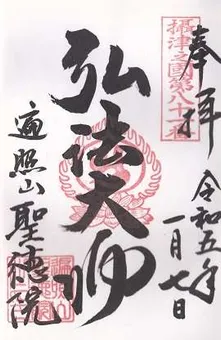 奉拝
攝津之國第八十六
令和五年
一月七日
弘法大師
遍照山
聖徳院